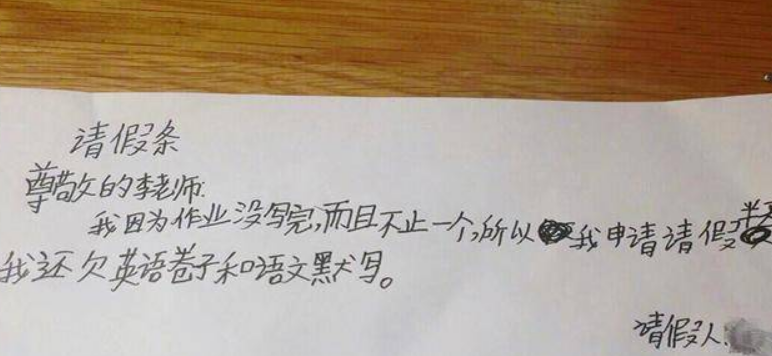 请假条
尊敬的李老师:
我因为作业没写完,而且不止一个,所以我申请请假半天
我还欠英语卷子和语文默写。
请假人: